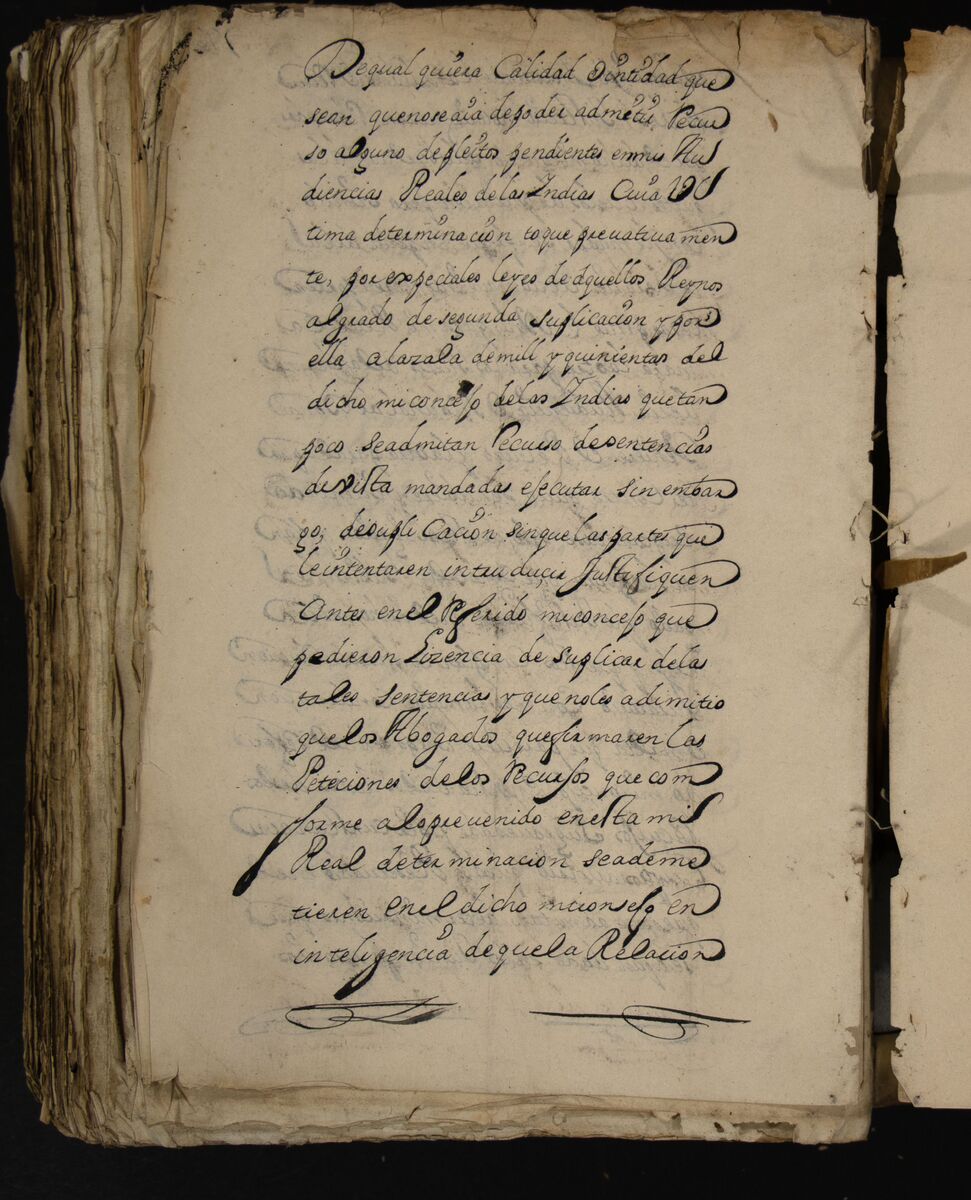 Dequal quiera Calidad Ôentidad que
sean quenoseaia depoder admetir Recur
so alguno depleitos pendientes enmis Au
diencias Reales delas Indias Cuia Vl
tima determinacion toque preuatiua men
te, por expeciales leyes de aquellos Reynos
algrado de segunda suplicacion y por
ella alasala demill y quinientas del
dicho miconcejo delas Indias quetan
poco seadmitan Recurso desentencias
devista mandadas ejecutar sin embar
go, desupli Cacion sinque las partes que
leintentaren intruducir Justifiquen
Antes enel Referido miconcejo que
pedieron Lizencia de suplicar delas
tales sentencias y que noles adimitio
quelos Abogados quefirmaren las
Peticiones delos Recursos que com
forme aloprevenido enesta mi
Real determinacion seademe
tieren enel dicho miconsejo en
inteligencia dequela Relacion